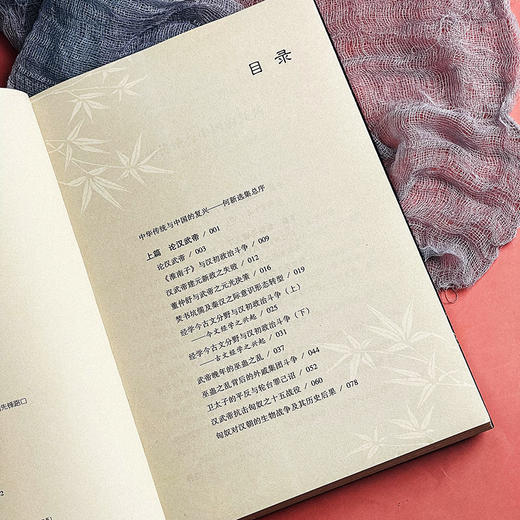 目录
中华传统与中国的复兴——何新选集总序
上篇 论汉武帝 / 001
论汉武帝 / 003
《淮南子》与汉初政治斗争 / 009
汉武帝建元新政之失败 / 012
董仲舒与武帝之元光决策 / 016
焚书坑儒及秦汉之际意识形态转型 / 019
经学今古文分野与汉初政治斗争（上）
——今文经学之兴起 / 025
经学今古文分野与汉初政治斗争（下）
——古文经学之兴起 / 031
武帝晚年的巫蛊之乱 / 037
巫蛊之乱背后的外戚集团斗争 / 044
卫太子的平反与轮台罪己诏 / 052
汉武帝抗击匈奴之十五战役 / 060
匈奴对汉朝的生物战争及其历史后果 / 078